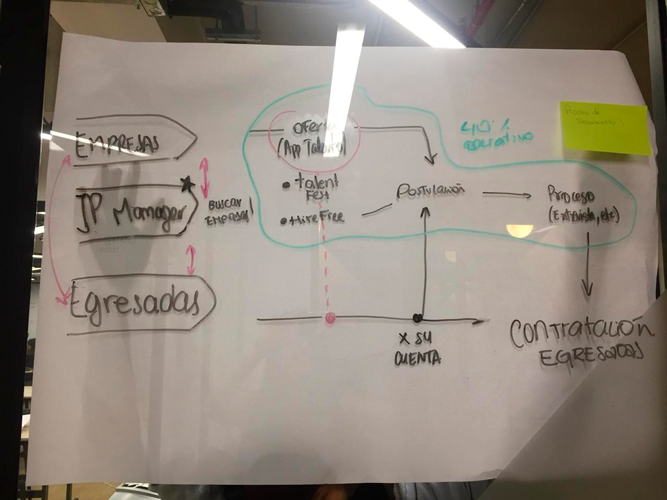 EMPRESAS
JP Manager
Egresadas
BUSCAR
EMPRESAS
Oferta
(App Talento)
• talent
Fest
• HireFree
Postulación
40%
Proceso
(Entrevista, etc)
X SU
CUENTA
CONTRATACIÓN
EGRESADAS